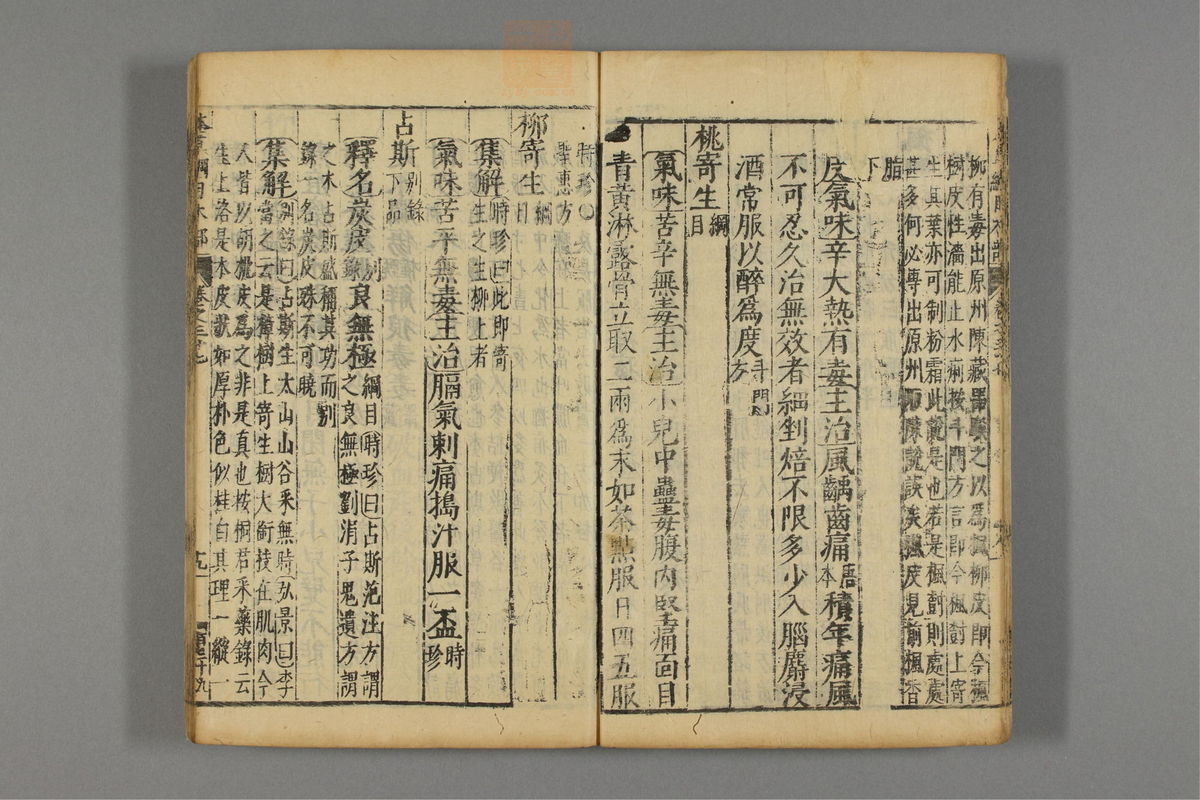 柳有毒出原州陳藏器之以爲楓柳皮即今楓
樹皮性濇能止水痢按斗門方言即今楓樹上寄
生其葉亦可制粉霜此說是也若是楓樹則處處
甚多何必專出原州陳說誤矣楓皮見前楓香
脂下
皮氣味辛大熱有毒主治風齲齒痛唐本積年痛風
不可忍久治無效者細剉焙不限多少入腦麝浸
酒常服以醉爲度斗門方
桃寄生綱目
氣味苦辛無毒主治小兒中蠱毒腹内堅痛面目
青黃淋露骨立取二兩爲末如茶點服日四五服
時珍〇
聖惠方
柳寄生綱目
集解時珍曰此即寄生之生柳上者
氣味苦平無毒主治膈氣刺痛搗汁服一盃時珍
占斯别錄下品
釋名炭皮别錄良無極綱目時珍曰占斯范汪方謂
之良無極劉涓子鬼遺方謂
之木占斯盛稱其功而别
錄一名炭皮殊不可曉
集解别錄曰占斯生太山山谷采無時弘景曰李
當之云是樟樹上寄生樹大銜技在肌肉今
人皆以胡桃皮爲之非是真也按桐君采藥錄云
生上洛是木皮狀如厚朴色似桂白其理一縱一
本草綱目木部 卷之三十七